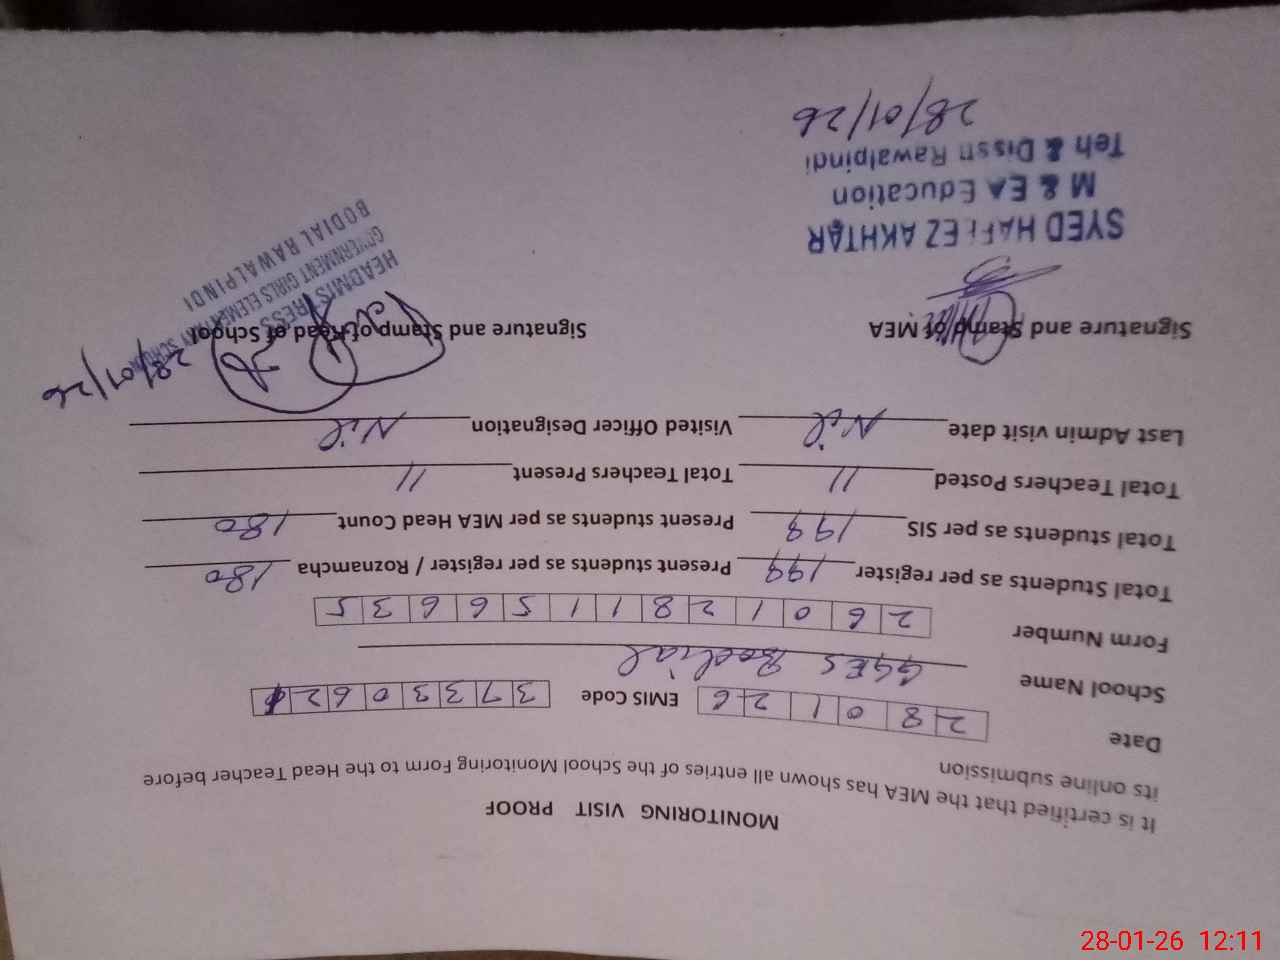 MONITORING VISIT PROOF
It is certified that the MEA has shown all entries of the School Monitoring Form to the Head Teacher before
its online submission
Date 2 8 0 1 2 6 EMIS Code 3 7 3 3 0 6 2
School Name GGES Bodial
Form Number 2 6 0 1 2 8 1 1 5 6 6 3 5
Total Students as per register 199 Present students as per register / Roznamcha 180
Total students as per SIS 199 Present students as per MEA Head Count 180
Total Teachers Posted 11 Total Teachers Present 11
Last Admin visit date Nil Visited Officer Designation Nil
Signature and Stamp of MEA Signature and Stamp of Head of School
28/01/26
SYED HAFEEZ AKHTAR
M & EA Education
Teh & Disstt Rawalpindi
28/01/26
HEADMISTRESS
GOVERNMENT GIRLS ELEMENTARY SCHOOL
BODIAL RAWALPINDI
28-01-26 12:11